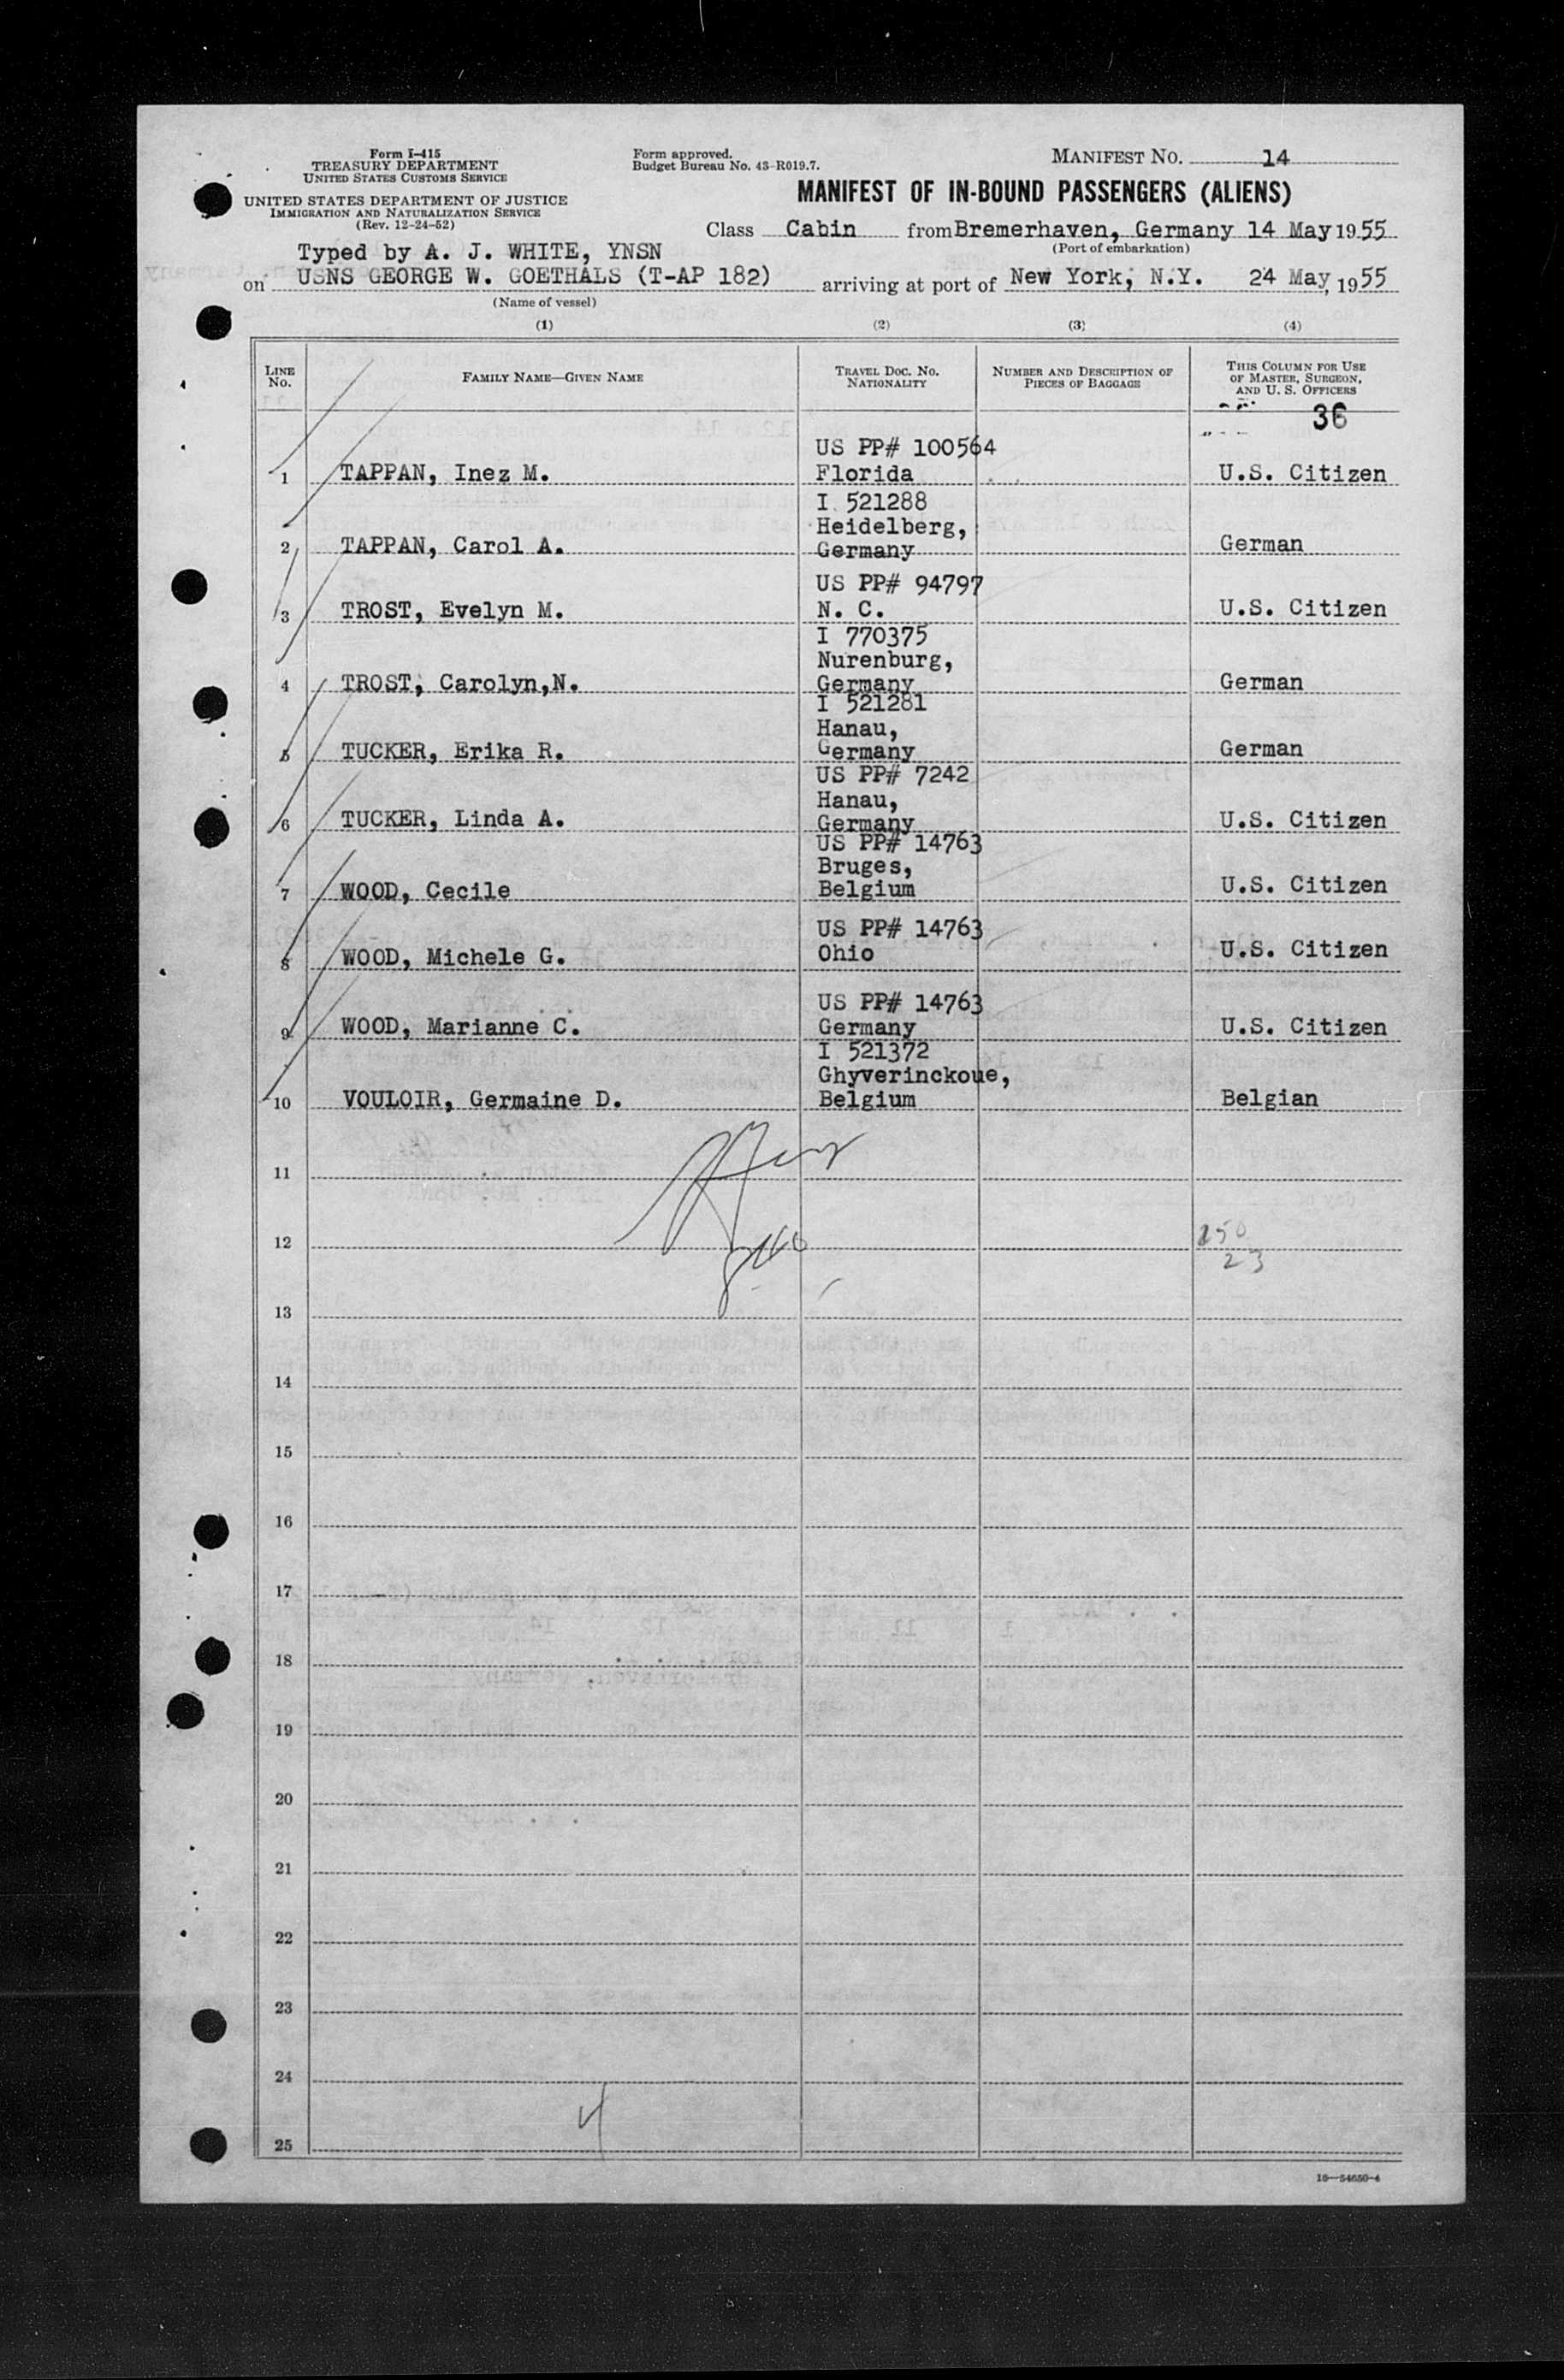 Form I-415
TREASURY DEPARTMENT
UNITED STATES CUSTOMS SERVICE
UNITED STATES DEPARTMENT OF JUSTICE
IMMIGRATION AND NATURALIZATION SERVICE
(Rev. 12-24-52)
Form approved.
Budget Bureau No. 43-R019.7.
MANIFEST NO. 14
MANIFEST OF IN-BOUND PASSENGERS (ALIENS)
Class Cabin from Bremerhaven, Germany 14 May 1955
(Port of embarkation)
Typed by A. J. WHITE, YNSN
on USNS GEORGE W. GOETHALS (T-AP 182) arriving at port of New York, N.Y. 24 May, 1955
(Name of vessel)
(1) (2) (3) (4)
LINE NO. FAMILY NAME—GIVEN NAME TRAVEL DOC. NO. NATIONALITY NUMBER AND DESCRIPTION OF PIECES OF BAGGAGE THIS COLUMN FOR USE OF MASTER, SURGEON, AND U. S. OFFICERS
36
US PP# 100564
1 TAPPAN, Inez M. Florida U.S. Citizen
I 521288
Heidelberg,
2 TAPPAN, Carol A. Germany German
US PP# 94797
3 TROST, Evelyn M. N. C. U.S. Citizen
I 770375
Nurenburg,
4 TROST, Carolyn,N. Germany German
I 521281
Hanau,
5 TUCKER, Erika R. Germany German
US PP# 7242
Hanau,
6 TUCKER, Linda A. Germany U.S. Citizen
US PP# 14763
Bruges,
7 WOOD, Cecile Belgium U.S. Citizen
US PP# 14763
8 WOOD, Michele G. Ohio U.S. Citizen
US PP# 14763
9 WOOD, Marianne C. Germany U.S. Citizen
I 521372
Ghyverinckoue,
10 VOULOIR, Germaine D. Belgium Belgian
11
12 250
23
13
14
15
16
17
18
19
20
21
22
23
24
25
16—54650-4